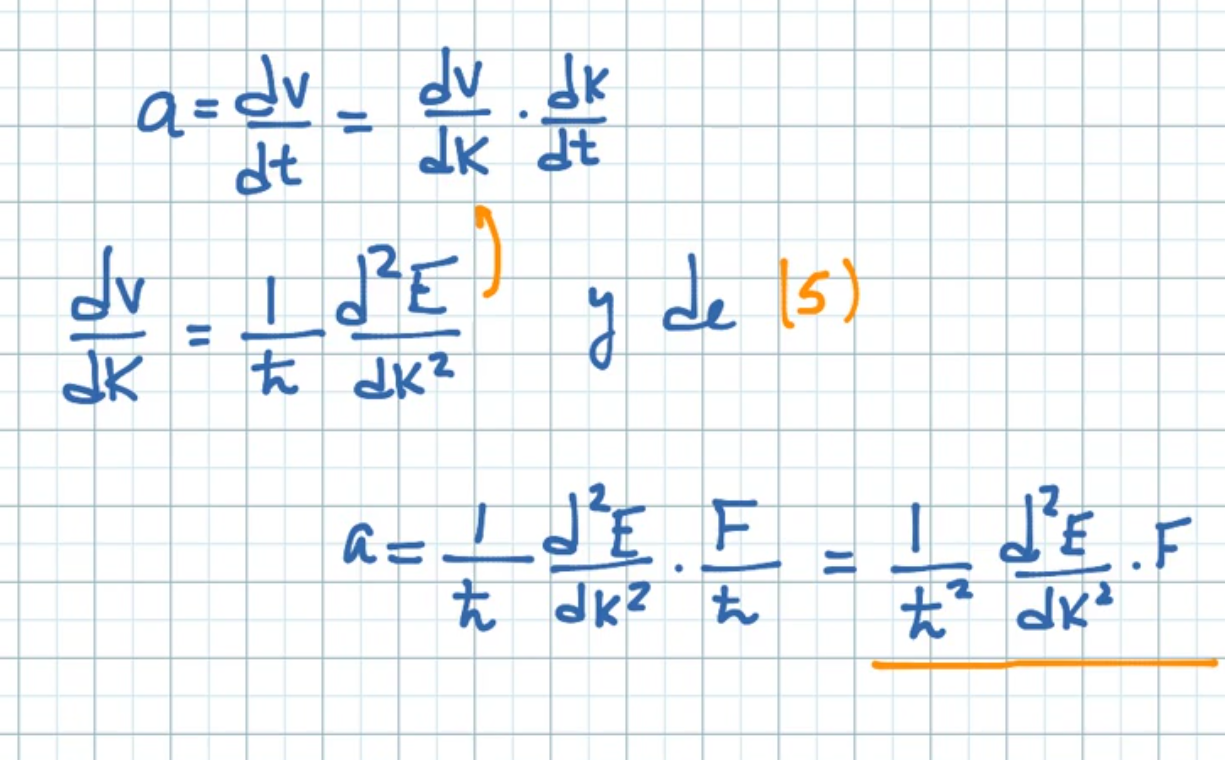 a = dv/dt = dv/dK · dk/dt
dv/dK = 1/ħ d²E/dK² y de (5)
a = 1/ħ d²E/dK² · F/ħ = 1/ħ² d²E/dK² · F